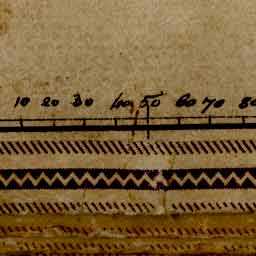 10 20 30 40 50 60 70 80